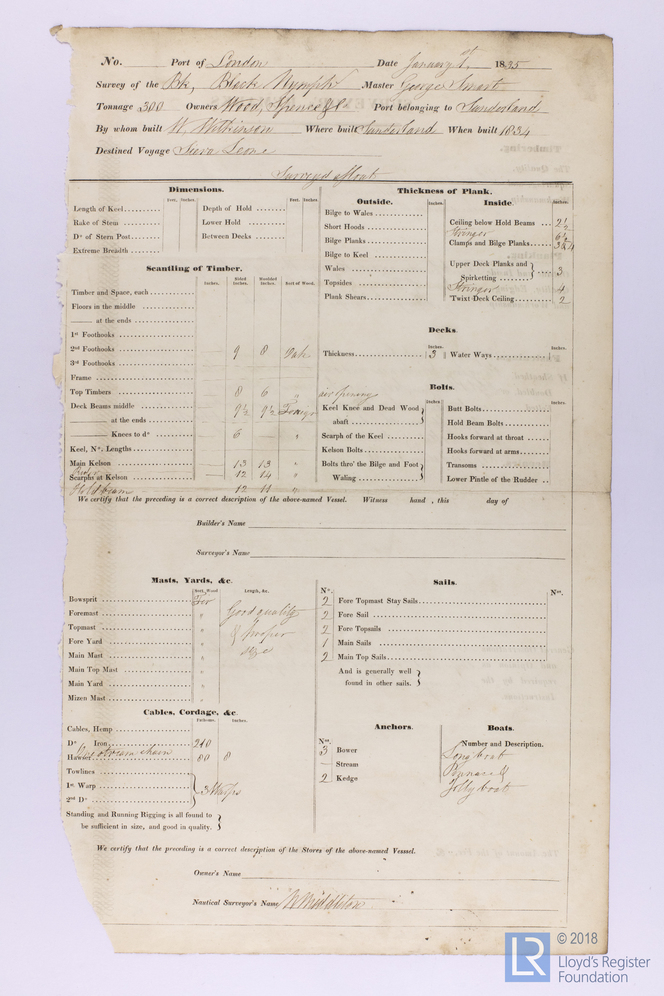 No. Port of London Date January 9th. 1835
Survey of the Bk, Black Nymph Master George Smart
Tonnage 300 Owners Wood, Spence & Co Port belonging to Sunderland
By whom built W. Wilkinson Where built Sunderland When built 1834
Destined Voyage Siera Leone
Surveyed afloat
Dimensions.
Feet. Inches. Feet. Inches.
Length of Keel Depth of Hold
Rake of Stem Lower Hold
Do. of Stern Post Between Decks
Extreme Breadth
Scantling of Timber.
Inches. Sided Inches. Moulded Inches. Sort of Wood.
Timber and Space, each
Floors in the middle
—— at the ends
1st Foothooks
2nd Foothooks 9 8 Oak
3rd Foothooks
Frame
Top Timbers 8 6 "
Deck Beams middle 9½ 9½ Foreign
—— at the ends
—— Knees to do. 6 "
Keel, No. Lengths
Main Kelson 13 13 "
Scarphs at Kelson 12 14 "
Hold beam 12 11 "
Thickness of Plank.
Outside. Inches. Inside. Inches.
Bilge to Wales
Short Hoods
Bilge Planks
Bilge to Keel
Wales
Topsides
Plank Shears
Ceiling below Hold Beams 2½
Stringer 6½
Clamps and Bilge Planks 3 & 4
Upper Deck Planks and Spirketting 3
Stringer 4
'Twixt Deck Ceiling 2
Decks.
Inches. Inches.
Thickness 3 Water Ways
Bolts.
Inches. Inches.
Keel Knee and Dead Wood abaft
Scarph of the Keel
Kelson Bolts
Bolts thro' the Bilge and Foot Waling
Butt Bolts
Hold Beam Bolts
Hooks forward at throat
Hooks forward at arms
Transoms
Lower Pintle of the Rudder
We certify that the preceding is a correct description of the above-named Vessel. Witness hand , this day of
Builder's Name
Surveyor's Name
Masts, Yards, &c.
Sort, Wood Length, &c.
Bowsprit Fir
Foremast " Good quality
Topmast " & proper
Fore Yard " size
Main Mast "
Main Top Mast "
Main Yard "
Mizen Mast "
Sails.
No. No.
2 Fore Topmast Stay Sails
2 Fore Sail
2 Fore Topsails
1 Main Sails
2 Main Top Sails
And is generally well
found in other sails.
Cables, Cordage, &c.
Fathoms. Inches.
Cables, Hemp
Do. Iron 210
stream chain
Hawser 80 8
Towlines
1st Warp 3 Warps
2nd Do.
Standing and Running Rigging is all found to
be sufficient in size, and good in quality.
Anchors.
No.
3 Bower
— Stream
2 Kedge
Boats.
Number and Description.
Long boat
Pinnace &
Jolly boat
We certify that the preceding is a correct description of the Stores of the above-named Vessel.
Owner's Name
Nautical Surveyor's Name W Middleton
LR
© 2018
Lloyd's Register
Foundation